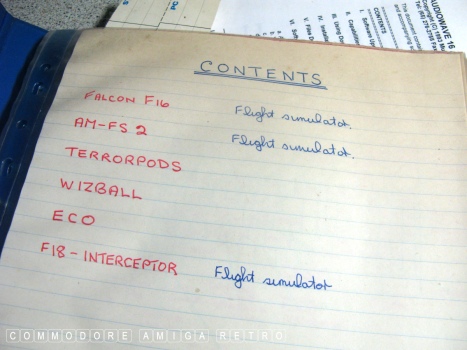 AUDIOWAVE 16
CONTENTS
CONTENTS
FALCON F16 Flight simulator.
AM-FS 2 Flight simulator.
TERRORPODS
WIZBALL
ECO
F18-INTERCEPTOR Flight simulator
COMMODORE AMIGA RETRO